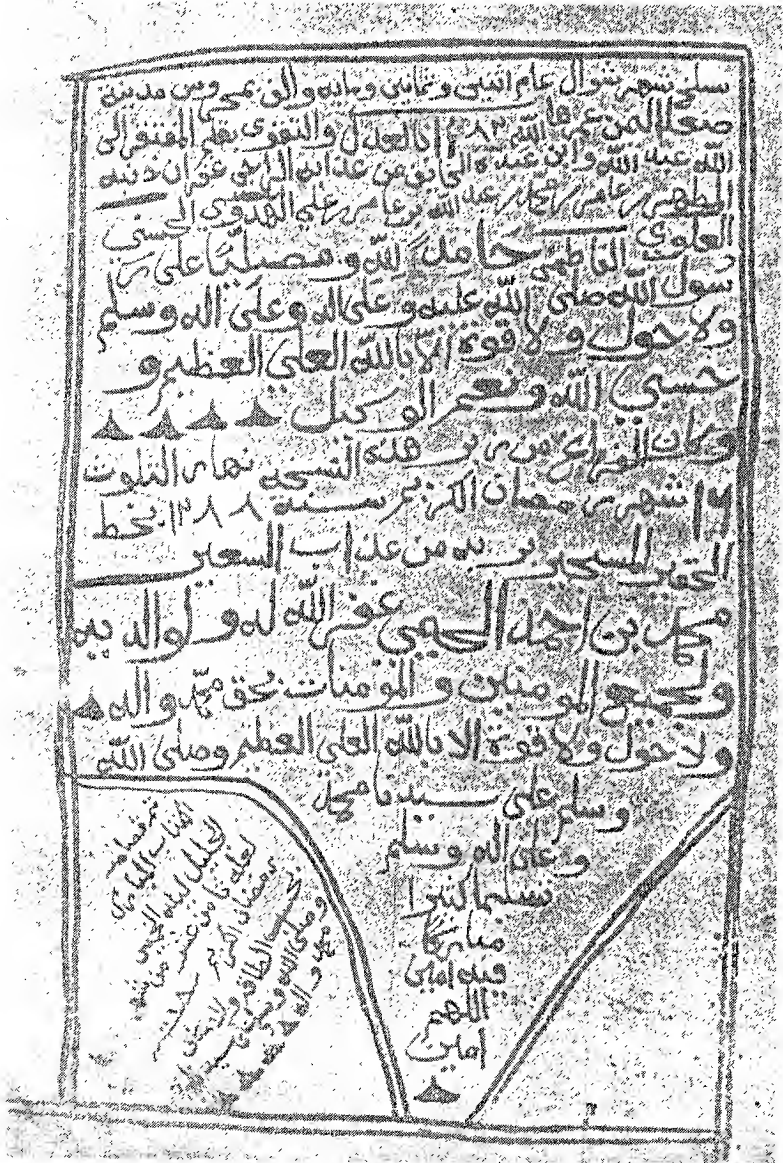 سلخ شهر شوال عام اثنتي وثمانين ومايه والف بمحروس مدينه
صنعا اليمن عمرها الله ١١٨٢ بالعدل والتقوى بقلم المفتقر الى
الله عبد الله وابن عبده الخائف من عذابه الراجي غفران ذنبه
المطهر بن عامر بن محمد بن عبد الله بن عامر بن علي الهدوي الحسني
العلوي الفاطمي حامداً لله ومصلياً على
رسول الله صلى الله عليه وعلى اله وعلى اله وسلم
ولا حول ولا قوة الا بالله العلي العظيم و
حسبي الله ونعم الوكيل
وكان الفراغ من زبر هذه النسخه نهار الثلوث
شهر رمضان الكريم سنة ١٢٨٨ بخط
الحقير المستجير بربه من عذاب السعير
محمد بن احمد الحيمي غفر الله له ولوالديه
ولجميع المومنين والمومنات بحق محمد واله
ولا حول ولا قوة الا بالله العلي العظيم وصلى الله
وسلم على سيدنا محمد
وعلى اله وسلم
تسليما كثيرا
مباركا
فيه امين
اللهم
امين
تم قصاصه
الجليل ليلة الخميس
لعله ثامن عشر من شهر
رمضان الكريم سنة
حسب الطاقه والامكان
وصلى الله وسلم على سيدنا
محمد واله